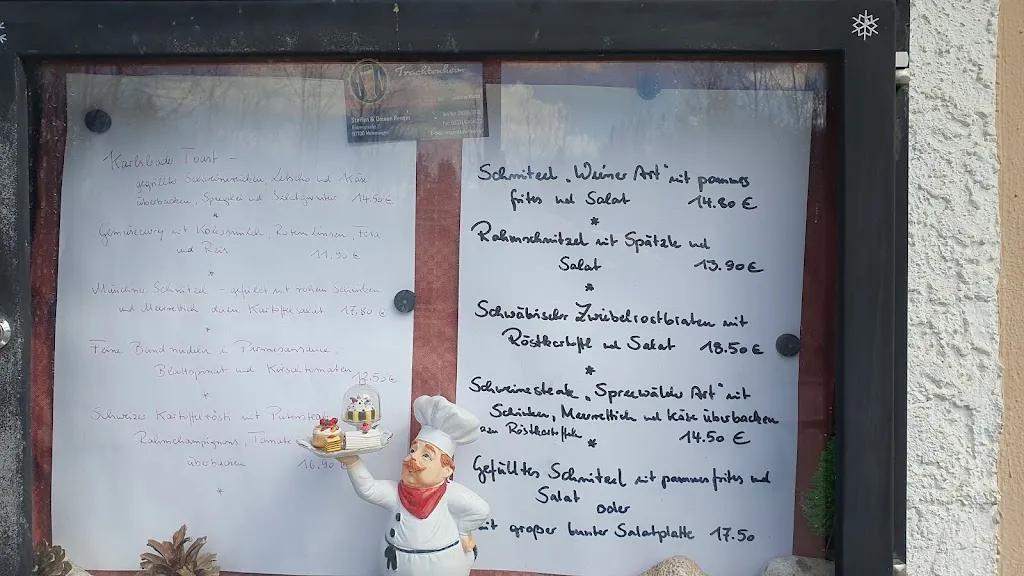 Trachtenheim
Steffen & Doreen
Karlsbader Toast -
gegrilltes Schweinerücken Letscho und Käse
überbacken, Spiegelei und Salatgarnitur 14.50€
*
Gemüsecurry mit Kokosmilch, Roten Linsen, Feta
und Reis 11,90€
*
Münchner Schnitzel - gefüllt mit rohem Schinken
und Meerrettich dazu Kartoffelsalat 17.80€
*
Feine Bandnudeln in Parmesansauce,
Blattspinat und Kirschtomaten 12.50€
*
Schweizer Kartoffelrösti mit Putensteak
Rahmchampignons, Tomate
überbacken 16.90
*
Schnitzel „Wiener Art" mit pommes
frites und Salat 14.80€
*
Rahmschnitzel mit Spätzle und
Salat 13.90€
*
Schwäbischer Zwiebelrostbraten mit
Röstkartoffel und Salat 18.50€
*
Schweinesteak „Spreewälder Art" mit
Schinken, Meerrettich und Käse überbacken
zu Röstkartoffeln 14.50€
*
Gefülltes Schnitzel mit pommes frites und
Salat
oder
mit großer bunter Salatplatte 17.50